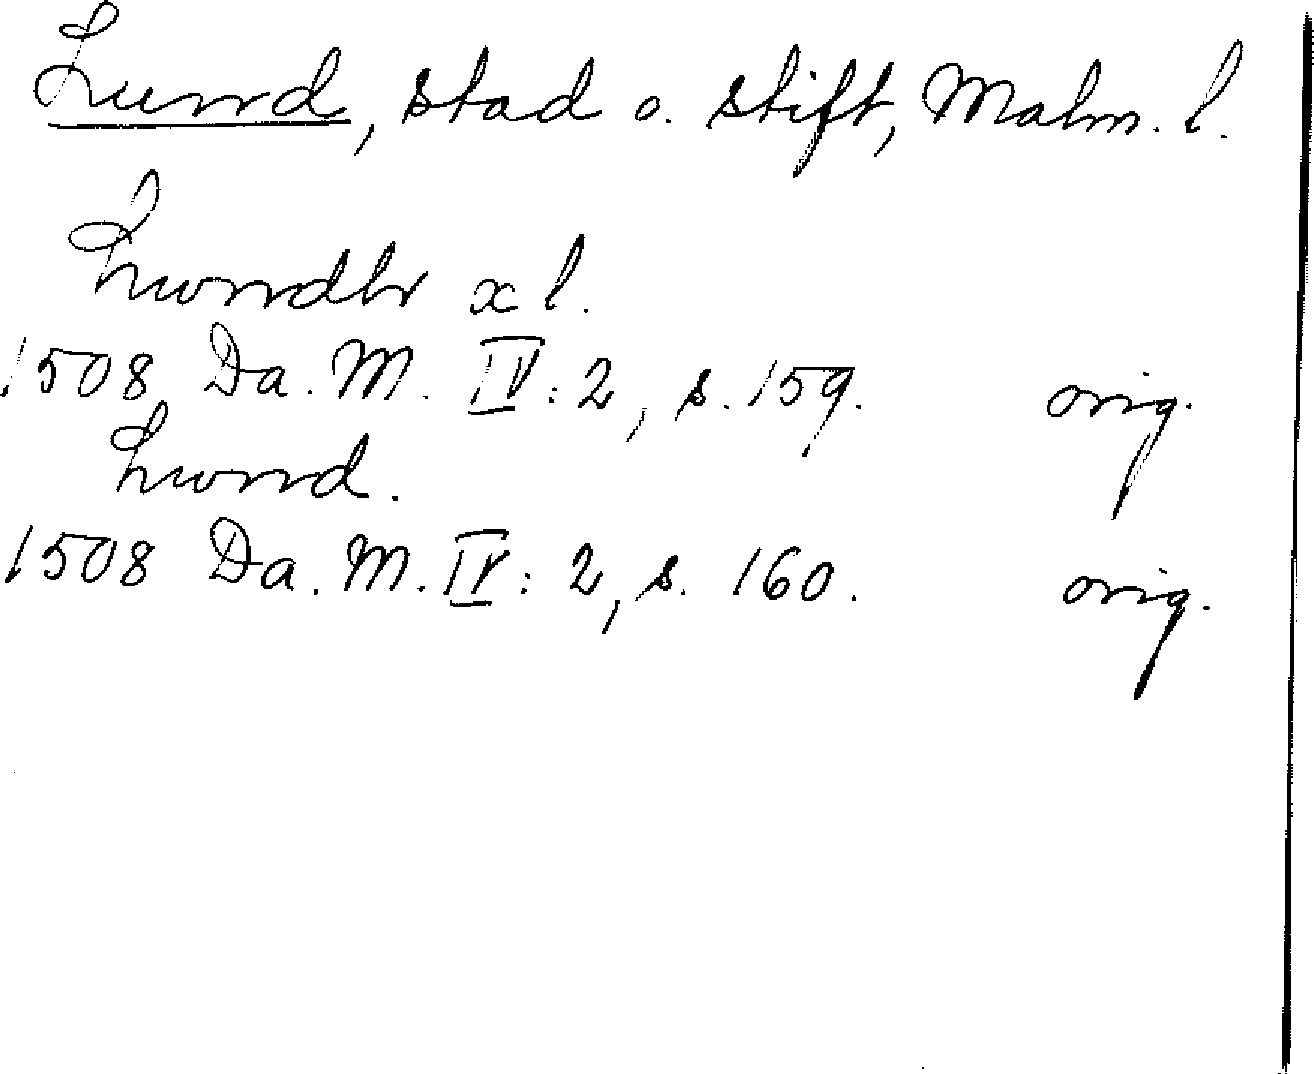 Lund, stad o. stift, Malm. l.
Lwndh x l.
1508 Da. M. IV: 2, s. 159. orig.
Lwnd.
1508 Da. M. IV: 2, s. 160. orig.